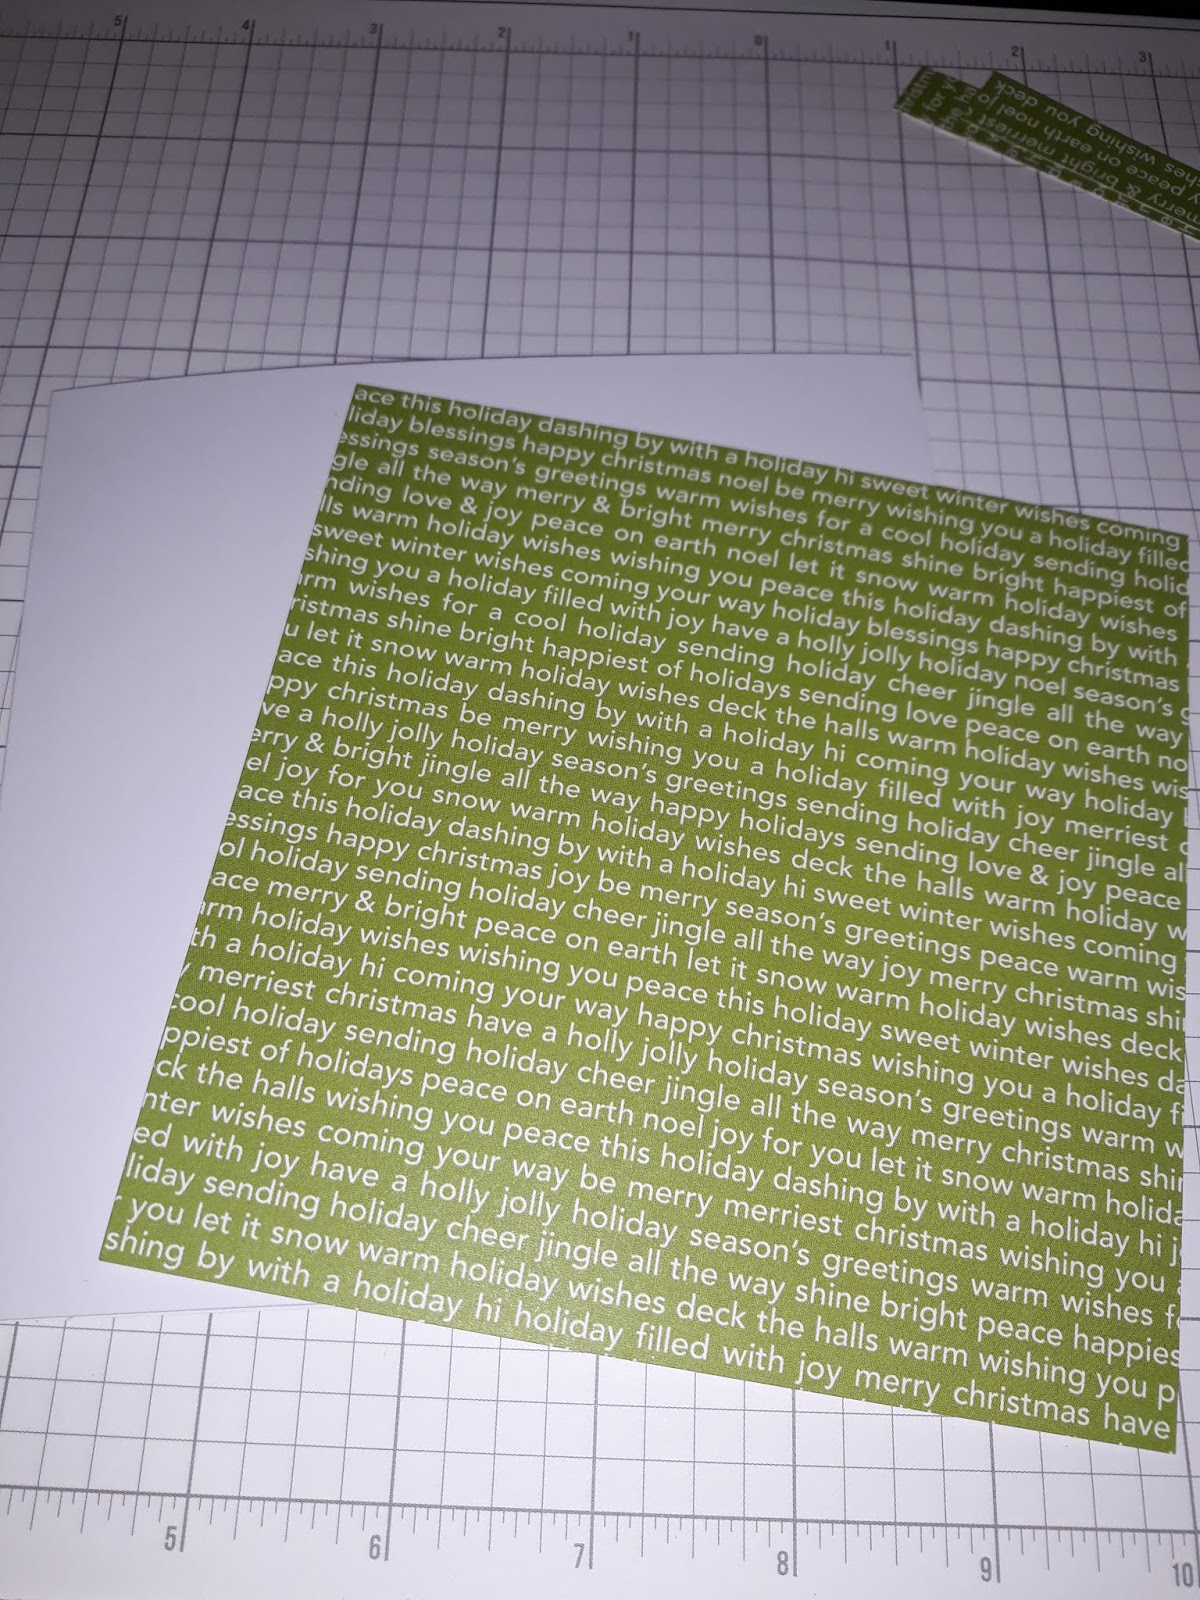 5 4 3 2 1 0 1 2 3
wishing you deck
peace on earth noel jo
merry & bright merriest
ace this holiday dashing by with a holiday hi sweet winter wishes coming
liday blessings happy christmas noel be merry wishing you a holiday filled
essings season's greetings warm wishes for a cool holiday sending holid
gle all the way merry & bright merry christmas shine bright happiest of
nding love & joy peace on earth noel let it snow warm holiday wishes
lls warm holiday wishes wishing you peace this holiday dashing by with
sweet winter wishes coming your way holiday blessings happy christmas
shing you a holiday filled with joy have a holly jolly holiday noel season's
arm wishes for a cool holiday sending holiday cheer jingle all the way
ristmas shine bright happiest of holidays sending love peace on earth no
u let it snow warm holiday wishes deck the halls warm holiday wishes wis
ace this holiday dashing by with a holiday hi coming your way holiday
ppy christmas be merry wishing you a holiday filled with joy merriest c
ve a holly jolly holiday season's greetings sending holiday cheer jingle al
erry & bright jingle all the way happy holidays sending love & joy peace
el joy for you snow warm holiday wishes deck the halls warm holiday w
ace this holiday dashing by with a holiday hi sweet winter wishes coming
essings happy christmas joy be merry season's greetings peace warm wis
ol holiday sending holiday cheer jingle all the way joy merry christmas shi
ace merry & bright peace on earth let it snow warm holiday wishes deck
arm holiday wishes wishing you peace this holiday sweet winter wishes da
th a holiday hi coming your way happy christmas wishing you a holiday fi
y merriest christmas have a holly jolly holiday season's greetings warm w
cool holiday sending holiday cheer jingle all the way merry christmas shin
ppiest of holidays peace on earth noel joy for you let it snow warm holida
ck the halls wishing you peace this holiday dashing by with a holiday hi j
nter wishes coming your way be merry merriest christmas wishing you
ed with joy have a holly jolly holiday season's greetings warm wishes fo
liday sending holiday cheer jingle all the way shine bright peace happies
you let it snow warm holiday wishes deck the halls warm wishing you p
shing by with a holiday hi holiday filled with joy merry christmas have
5 6 7 8 9 10